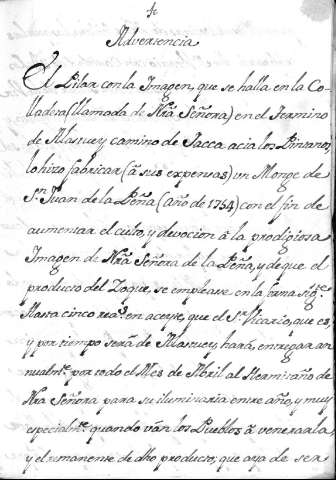 Advertencia
El Pilar con la Imagen, que se halla en la Co-
lladera (llamada de Nrâ Señora) en el Termino
de Alastuey camino de Jacca acia los Pintanos,
lo hizo fabricar (â sus expensas) un Monge de
Sn. Juan de la Peña (año de 1754) con el fin de
aumentar el culto, y devocion â la prodigiosa
Imagen de Nrâ Señora de la Peña, y de que el
producto del se empleave en la forma sigte.
Hasta cinco reas. en aceyte, que el Sr. Vicario, que es,
y por tiempo serâ de Alastuey, harâ, entregar an-
nualmte. por todo el Mes de Abril al Hermitaño de
Nrâ Señora para su iluminaria entre año, y muy
especialmte. quando vân los Pueblos â venerarla,
y el remanente de dho producto, que aya de ser